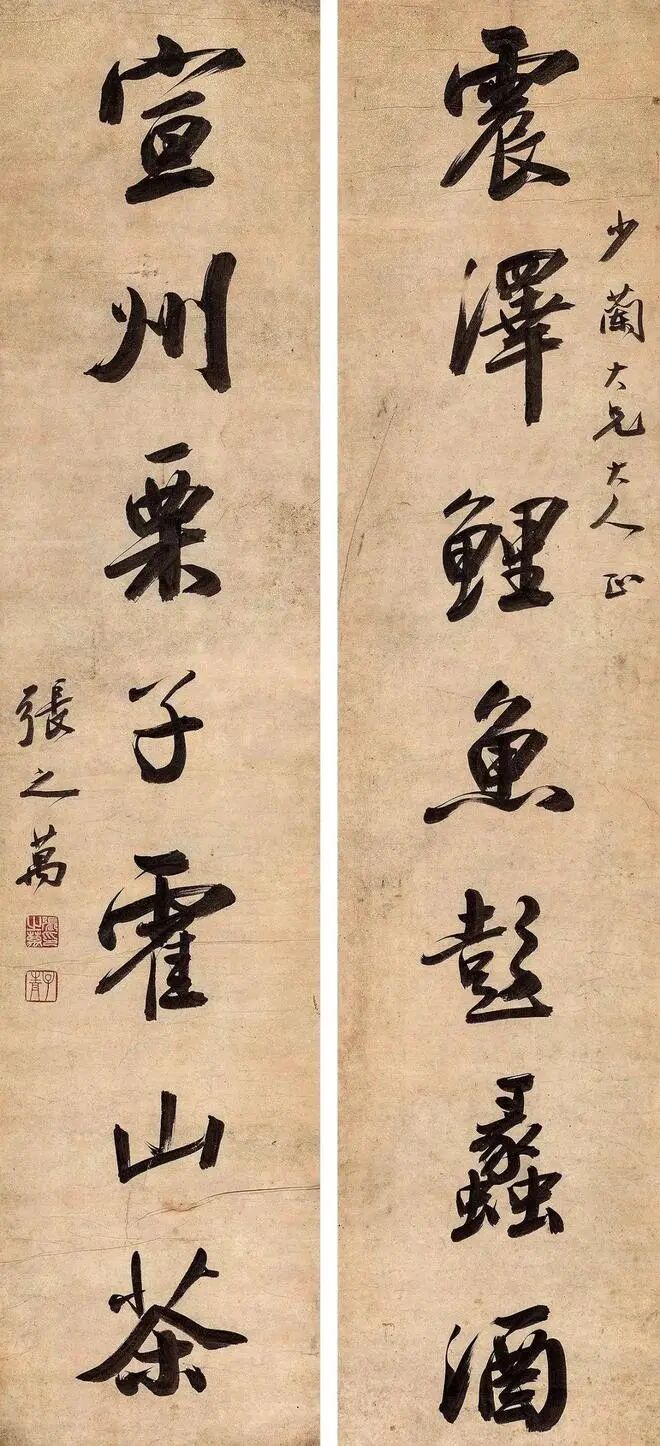 震澤鯉魚彭蠡酒
少蘭大兄大人正
宣州栗子霍山茶
張之萬
張之萬印
子青